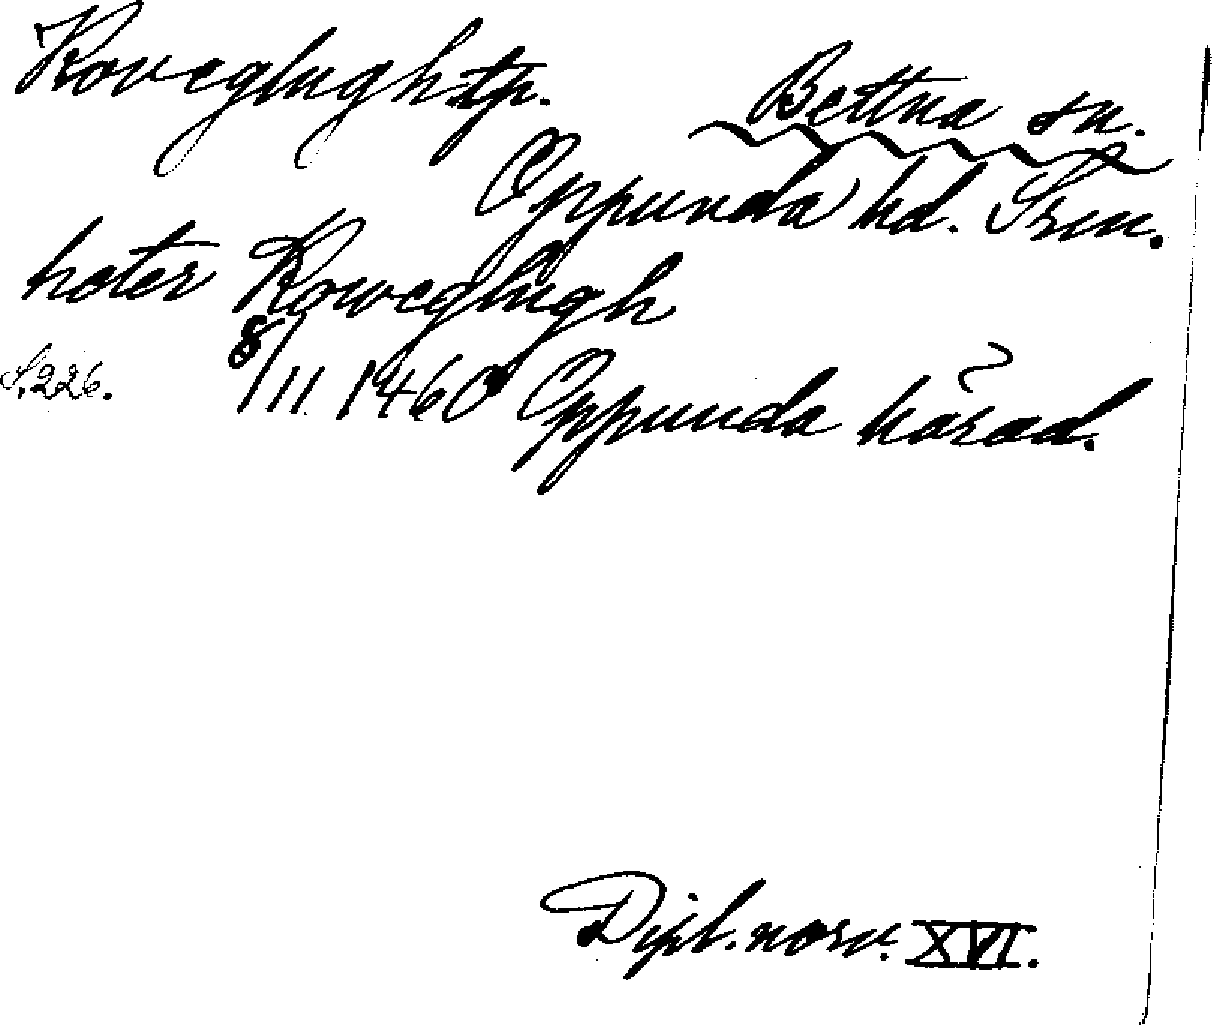 Roveglugh tp. Bettna sn.
Oppunda hd. Srm.
heter Roweglugh
S. 226. 8/11 1460 Oppunda härad.
Dipl. norv. XVI.